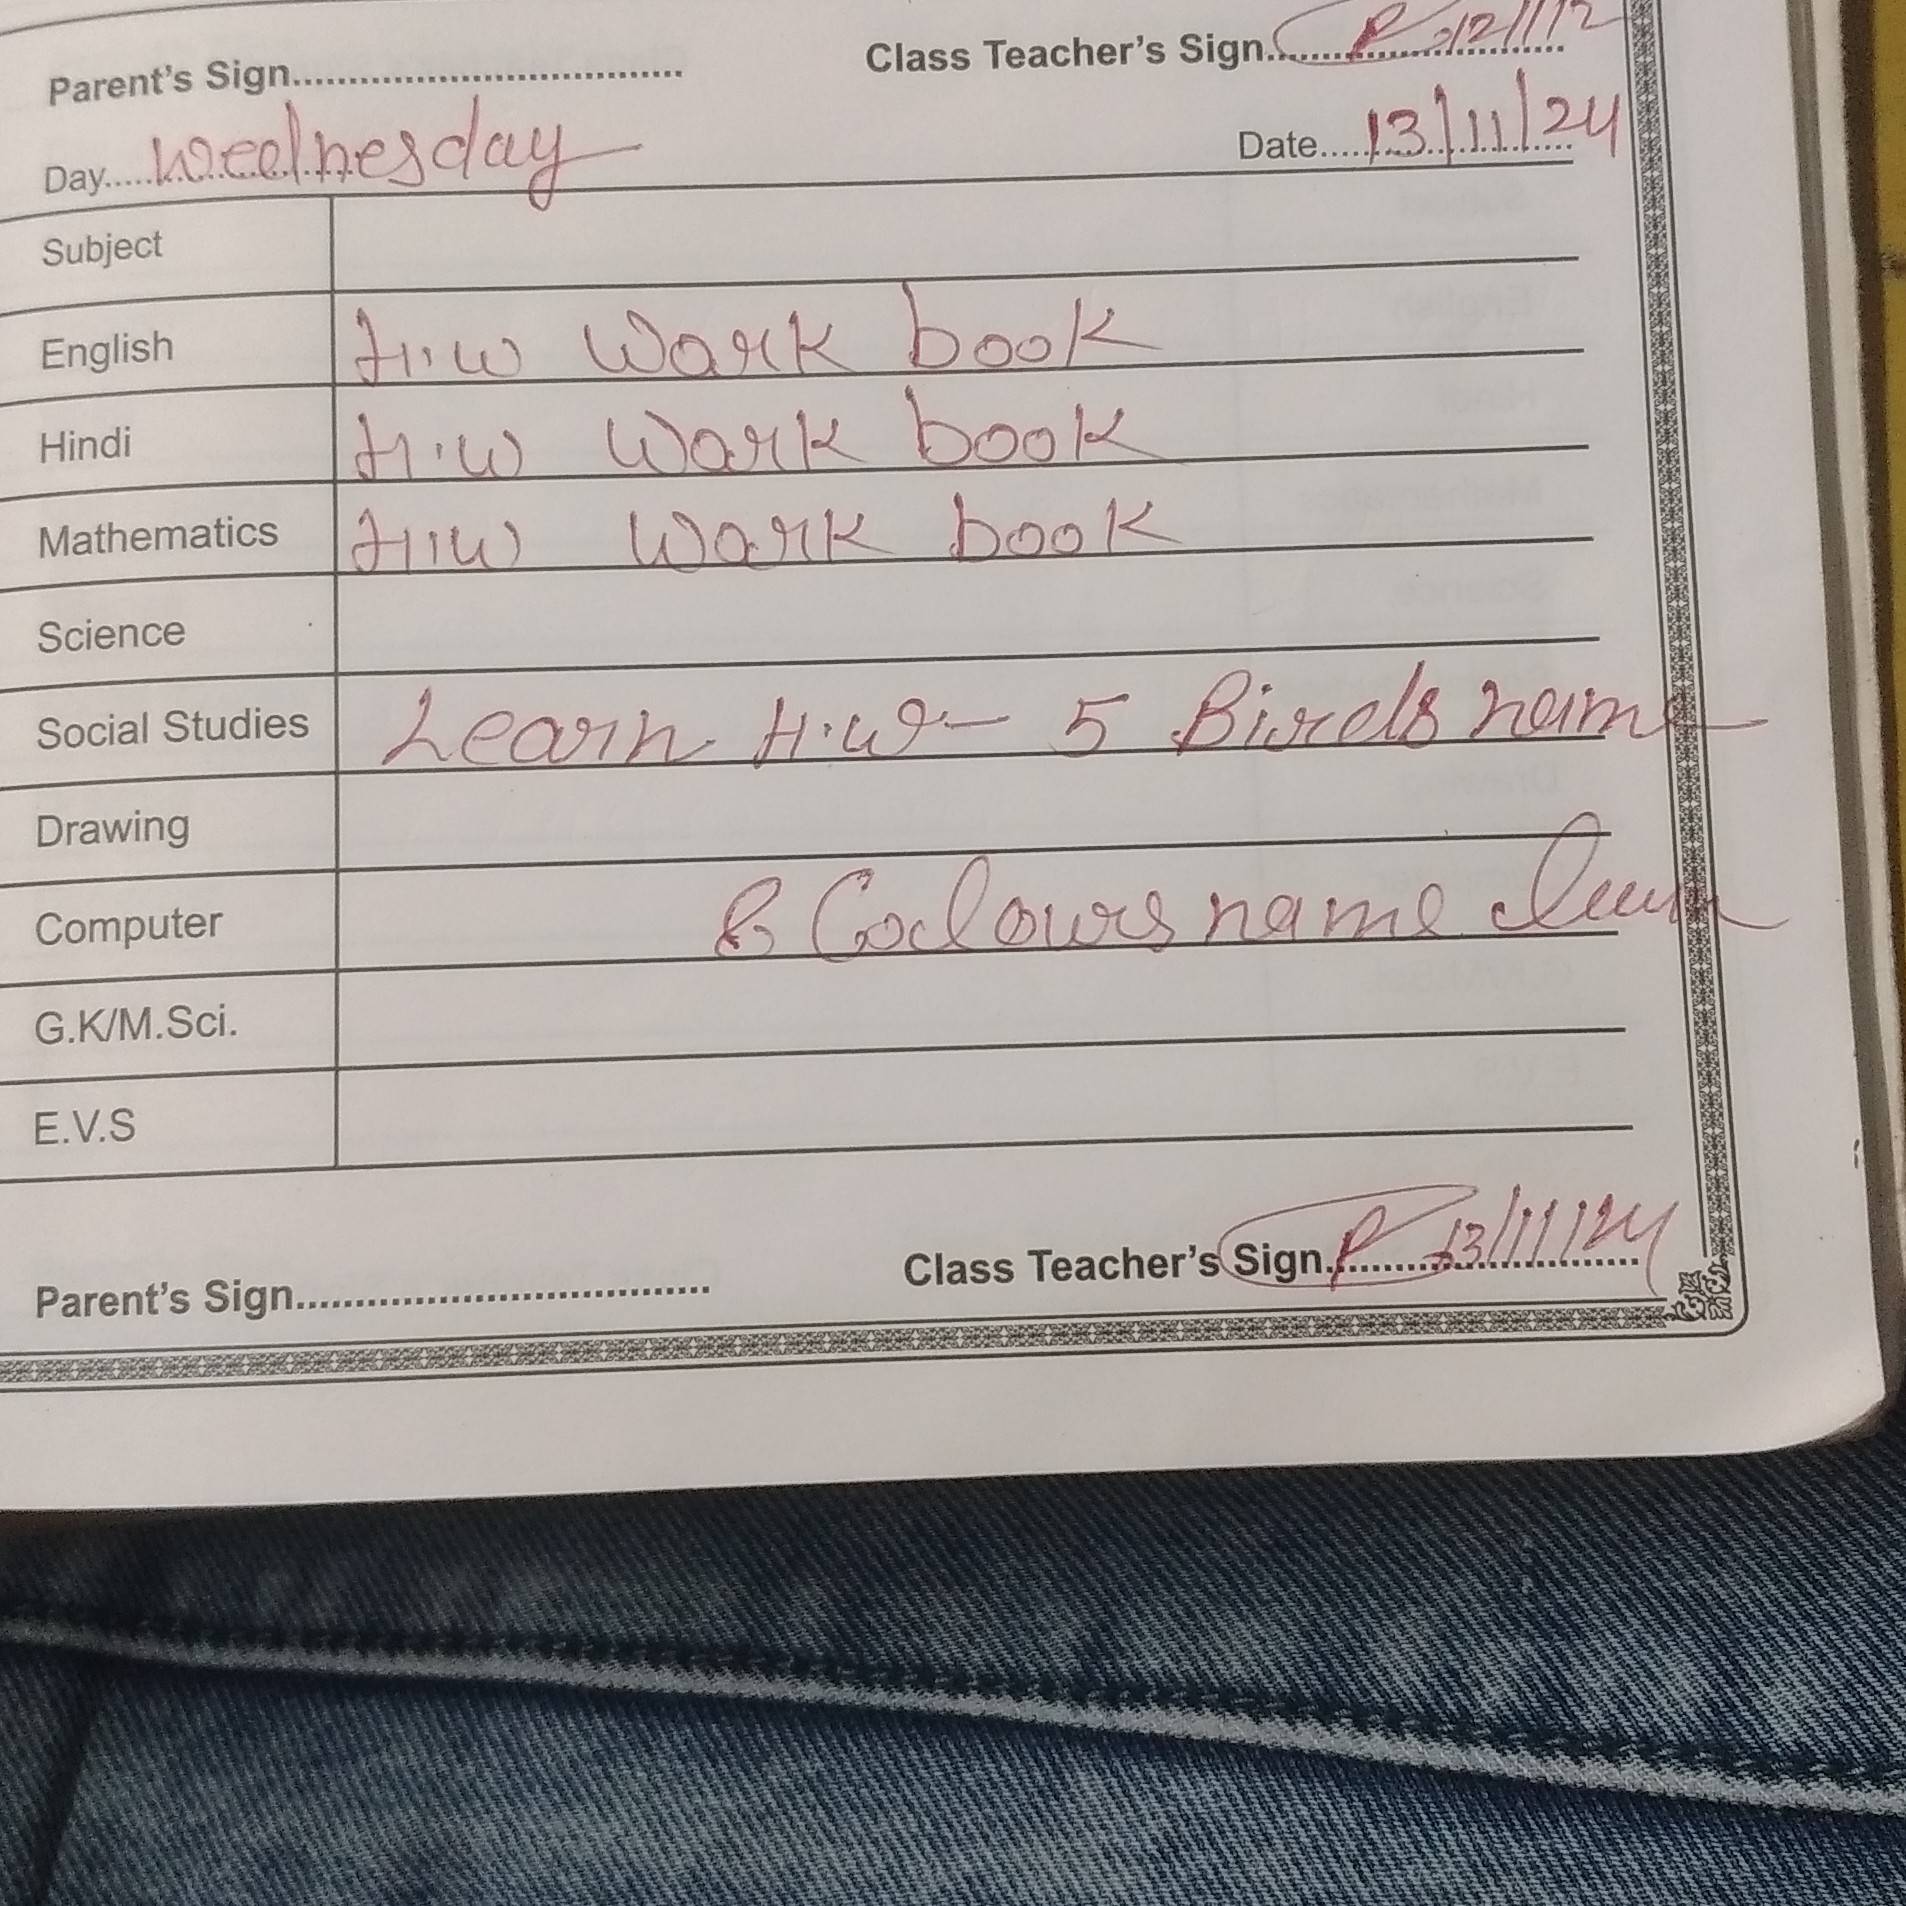 Parent's Sign.................................... Class Teacher's Sign.............................. 12/11/2
Day..... Wednesday Date..... 13/11/24
Subject
English H.W Work book
Hindi H.W Work book
Mathematics H.W Work book
Science
Social Studies Learn H.W- 5 Birds name
Drawing
Computer & Colours name learn
G.K/M.Sci.
E.V.S
Parent's Sign.................................... Class Teacher's Sign.............................. 13/11/24